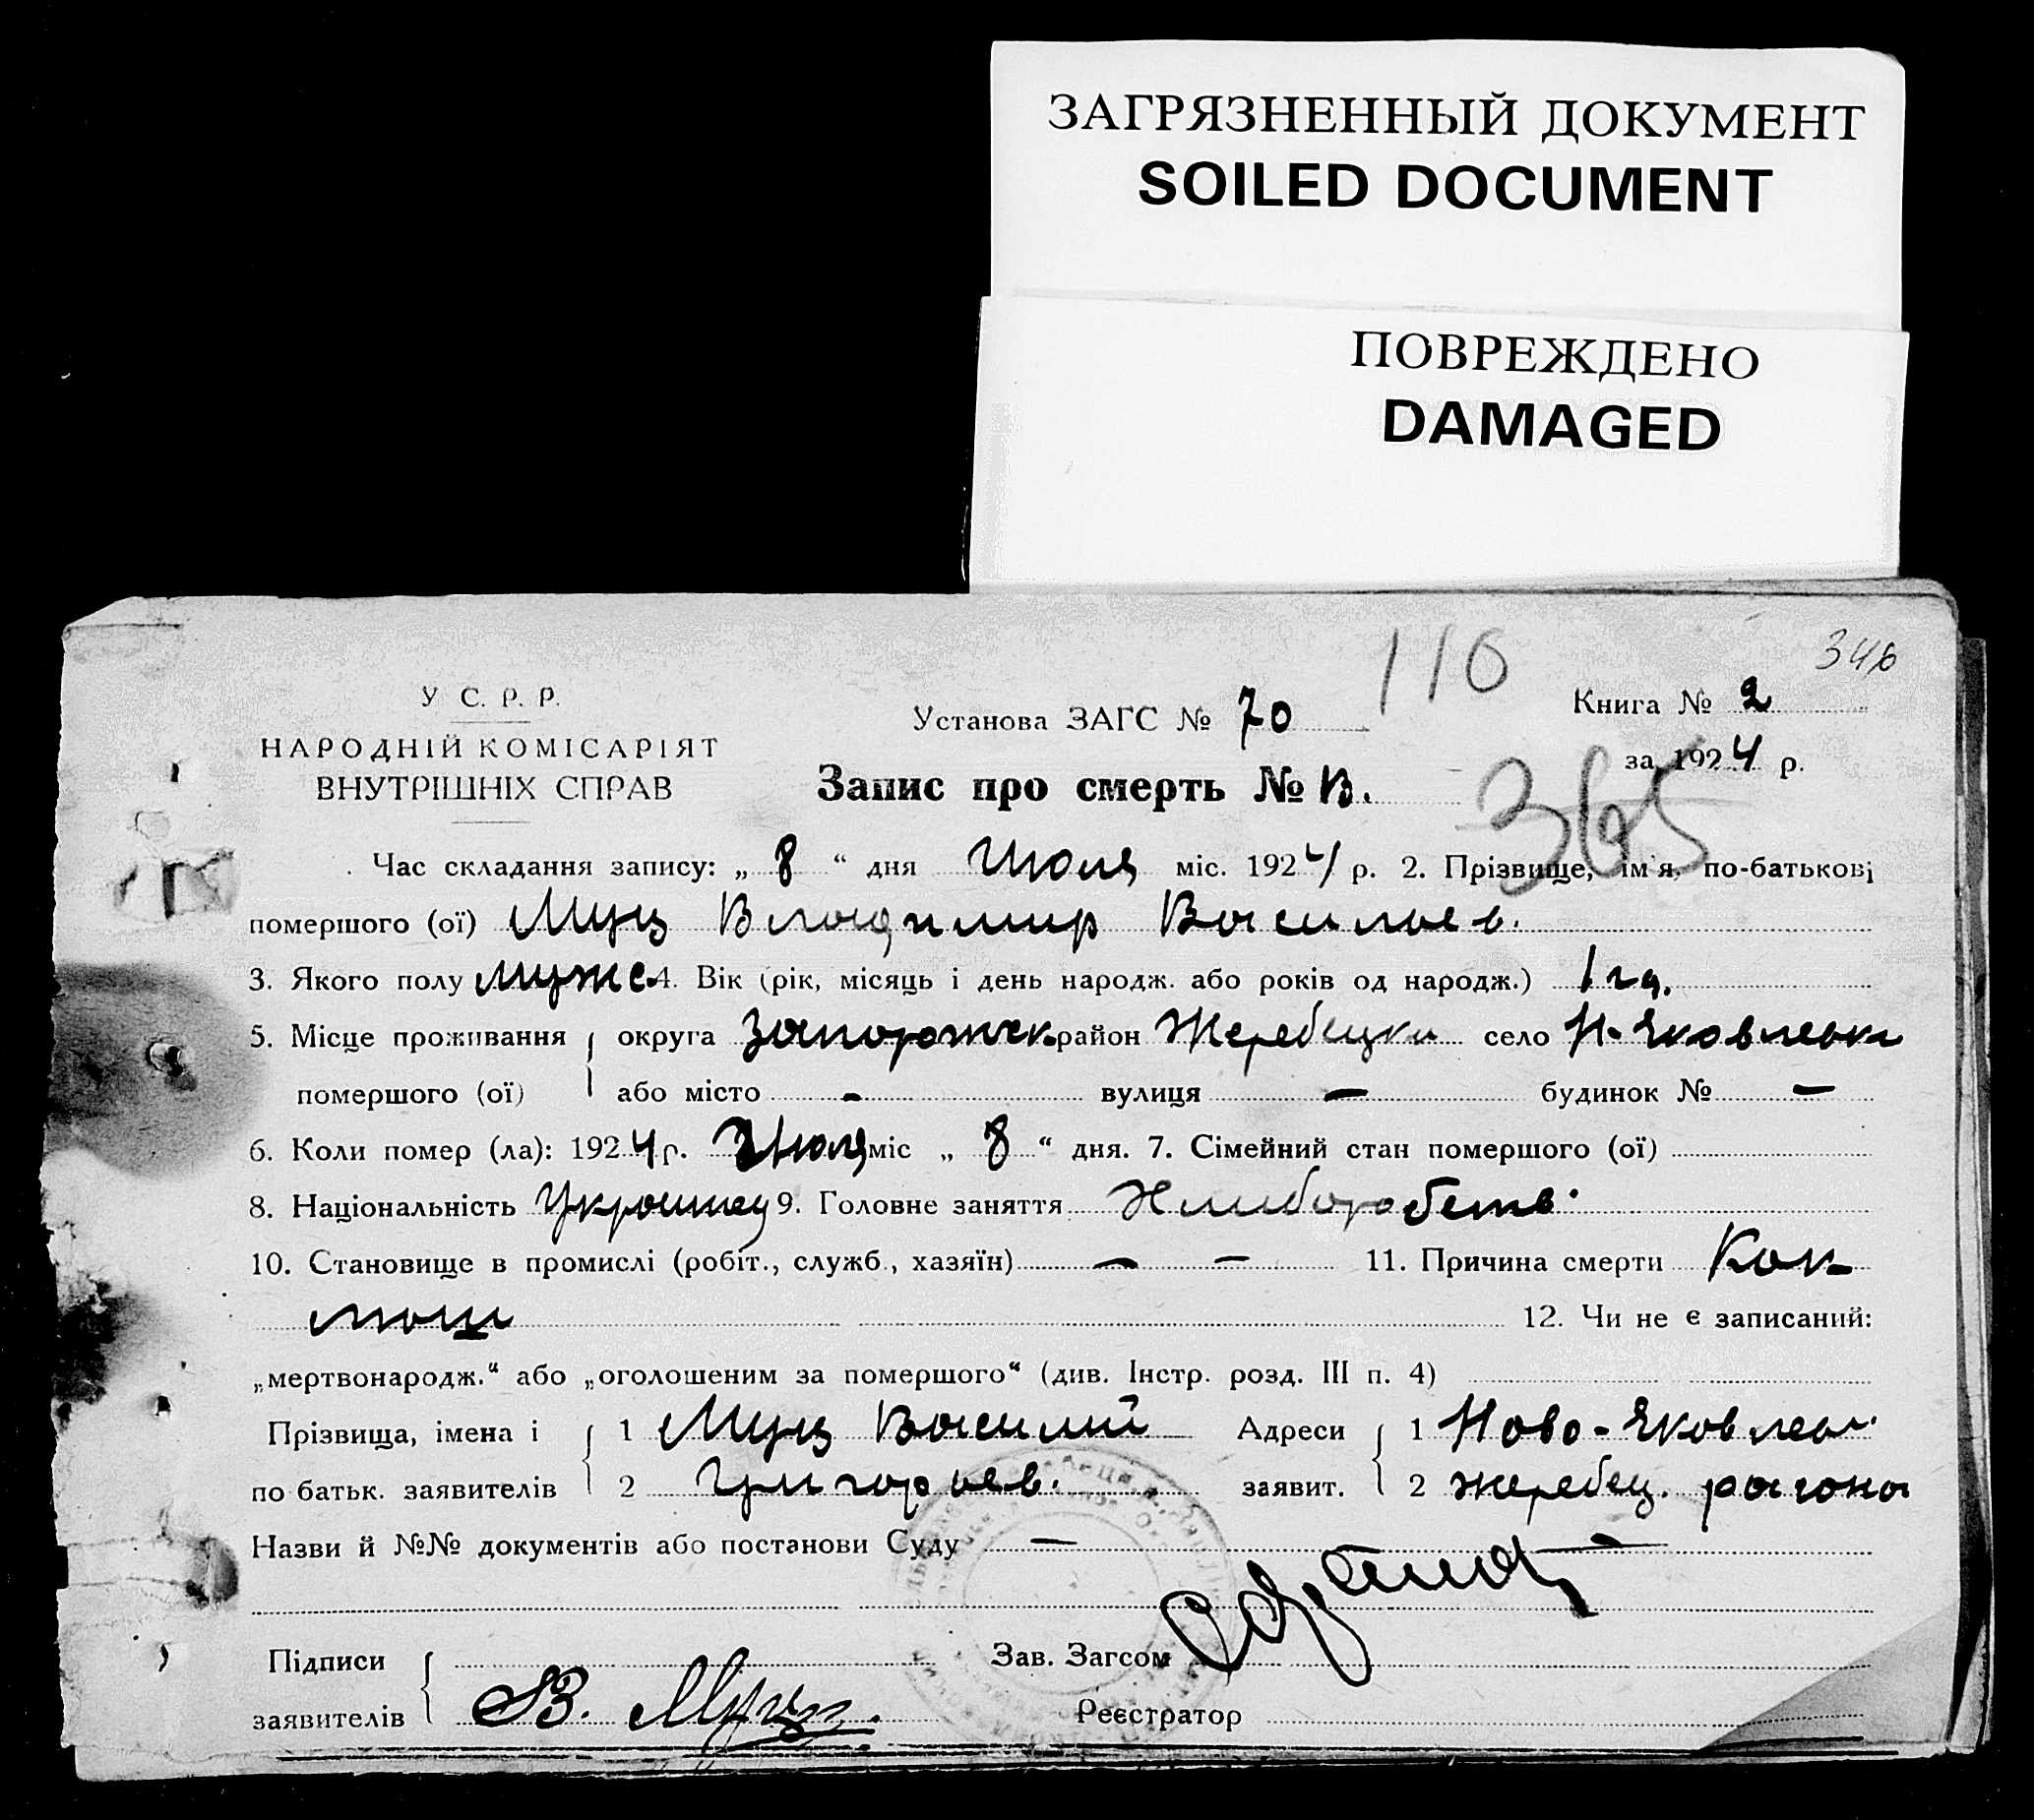 ЗАГРЯЗНЕННЫЙ ДОКУМЕНТ
SOILED DOCUMENT
ПОВРЕЖДЕНО
DAMAGED
110
346
У С. Р. Р.
НАРОДНІЙ КОМІСАРІЯТ
ВНУТРІШНІХ СПРАВ
Установа ЗАГС № 70
Книга № 2
за 1924 р.
Запис про смерть № 13.
365
Час складання запису: „ 8 “ дня Июля міс. 1924 р. 2. Прізвище, ім'я, по-батькові
помершого (ої) Муц Владимир Васильев.
3. Якого полу мужс 4. Вік (рік, місяць і день народж. або років од народж.) 1 гд.
5. Місце проживання округа Запорожск район Жеребецки село Н-Яковлевки
помершого (ої) або місто - вулиця - будинок № -
6. Коли помер (ла): 1924 р. Июля міс „ 8 “ дня. 7. Сімейний стан помершого (ої)
8. Національність Украинец 9. Головне заняття Хлиборобств.
10. Становище в промислі (робіт., служб., хазяїн) - - 11. Причина смерти Кок
люш 12. Чи не є записаний:
„мертвонародж.“ або „оголошеним за помершого“ (див. Інстр. розд. III п. 4)
Прізвища, імена і 1 Муц Василий Адреси 1 Ново-Яковлев.
по батьк. заявителів 2 Григорьев. заявит. 2 жеребец. района
Назви й №№ документів або постанови Суду -
Підписи Зав. Загсом
заявителів В. Муц. Реєстратор